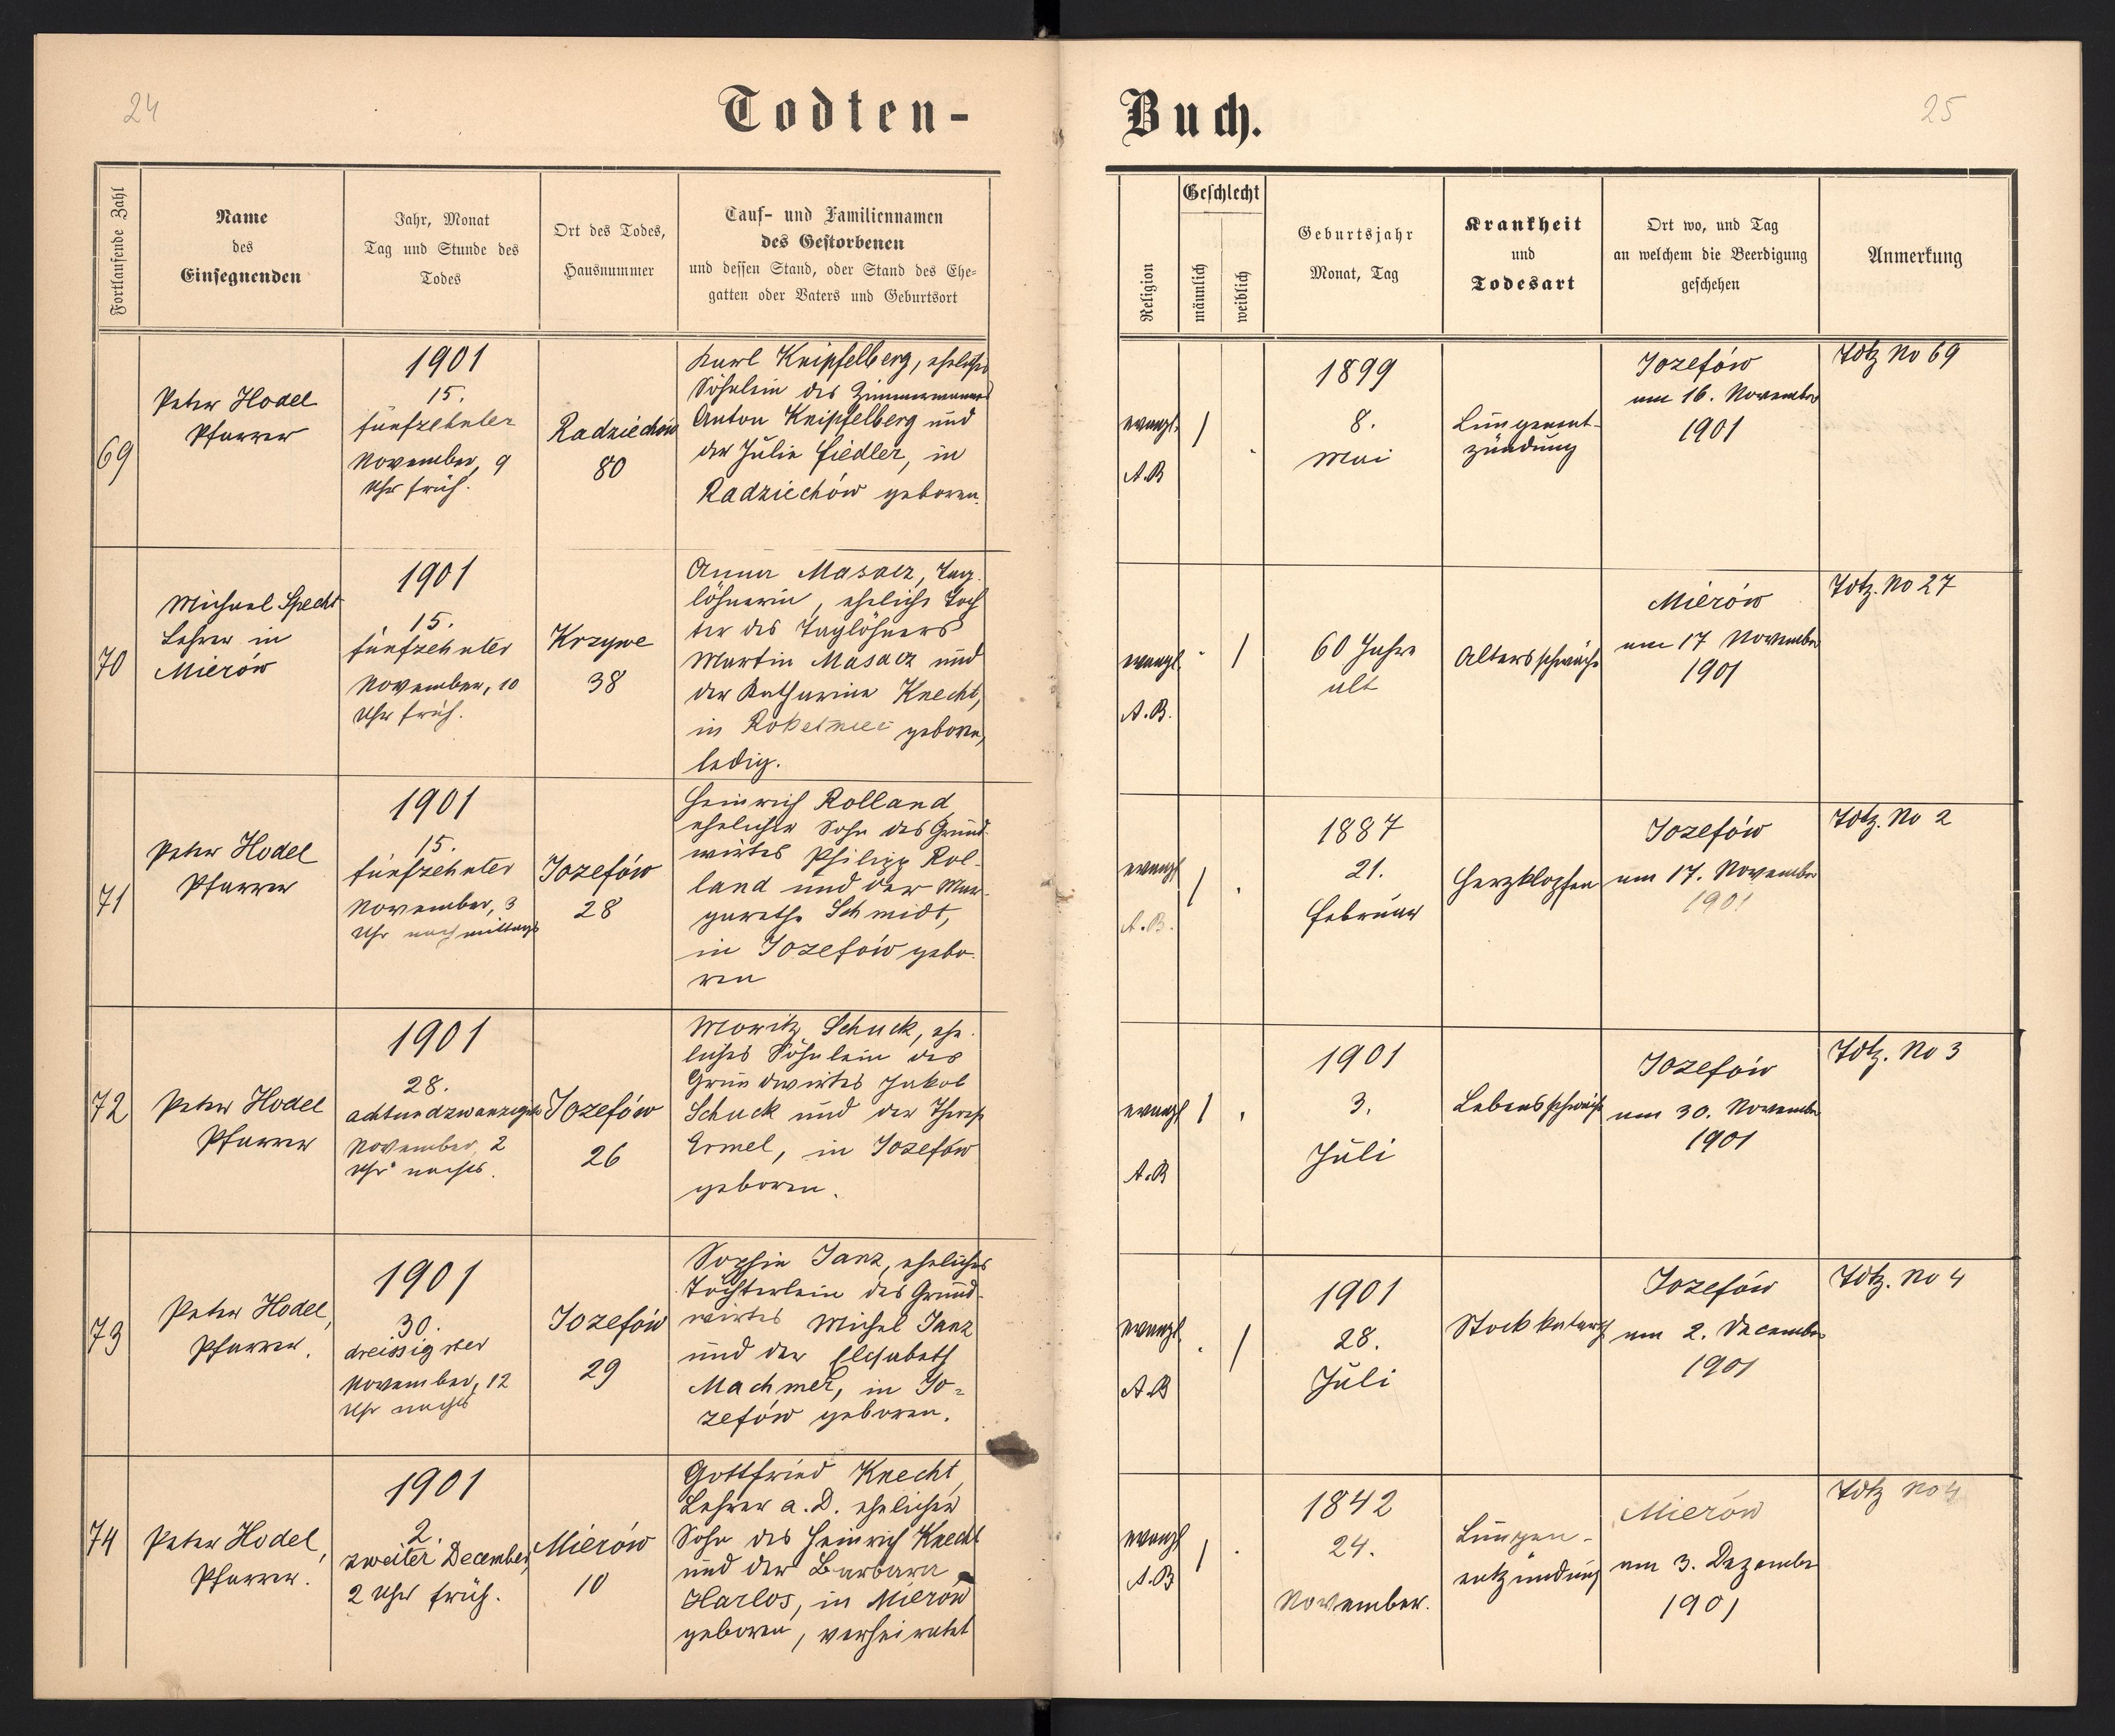 24
Todten-
Fortlaufende Zahl
Name
des
Einsegnenden
Jahr, Monat
Tag und Stunde des
Todes
Ort des Todes,
Hausnummer
Tauf- und Familiennamen
des Gestorbenen
und dessen Stand, oder Stand des Ehe-
gatten oder Vaters und Geburtsort
69
Peter Hodel
Pfarrer
1901
15.
fünfzehnter
November, 9
Uhr früh.
Radziechów
80
Karl Kneipfelberg, eheliches
Söhnlein des Zimmermanns
Anton Kneipfelberg und
der Julie Fiedler, in
Radziechów geboren.
70
Michael Specht
Lehrer in
Mierów
1901
15.
fünfzehnter
November, 10
Uhr früh.
Krzywe
38
Anna Masacz, Tag-
löhnerin, eheliche Toch
ter des Taglöhners
Martin Masacz und
der Katharina Knecht,
in geboren,
ledig.
71
Peter Hodel
Pfarrer
1901
15.
fünfzehnter
November, 3
Uhr nachmittags
Jozefów
28
Heinrich Rolland
ehelicher Sohn des Grund-
wirtes Philipp Rol-
land und der Mar-
garethe Schmidt,
in Jozefów gebo-
ren
72
Peter Hodel
Pfarrer
1901
28.
achtundzwanzigster
November, 2
Uhr nachts.
Jozefów
26
Moritz Schuck, ehe-
liches Söhnlein des
Grundwirtes Jakob
Schuck und der Therese
Ermel, in Jozefów
geboren.
73
Peter Hodel,
Pfarrer.
1901
30.
dreissigster
November, 12
Uhr nachts
Jozefów
29
Sophie Janz, eheliches
Töchterlein des Grund-
wirtes Michel Janz
und der Elisabeth
Machmer, in Jo-
zefów geboren.
74
Peter Hodel,
Pfarrer.
1901
2.
zweiter December,
2 Uhr früh.
Mierów
10
Gottfried Knecht,
Lehrer a. D. ehelicher
Sohn des Heinrich Knecht
und der Barbara
Harlos, in Mierów
geboren, verheiratet
Buch.
25
Religion
Geschlecht
männlich
weiblich
Geburtsjahr
Monat, Tag
Krankheit
und
Todesart
Ort wo, und Tag
an welchem die Beerdigung
geschehen
Anmerkung
evangl.
A.B
/
1899
8.
Mai
Lungenent-
zündung
Jozefów
am 16. November
1901
Totz No 69
evangl.
A.B.
/
60 Jahre
alt
Altersschwäche
Mierów
am 17 November
1901
Totz. No 27
evangl
A.B.
/
1887
21.
Februar
Herzklopfen
Jozefów
am 17. November
1901
Totz. No 2
evangl
A.B
/
1901
3.
Juli
Lebensschwäche
Jozefów
am 30. November
1901
Totz. No 3
evangl.
A.B
/
1901
28.
Juli
Stockkatarrh
Jozefów
am 2. December
1901
Totz. No 4
evangl
A.B
/
1842
24.
November.
Lungen-
entzündung
Mierów
am 3. Dezember
1901
Totz No 4